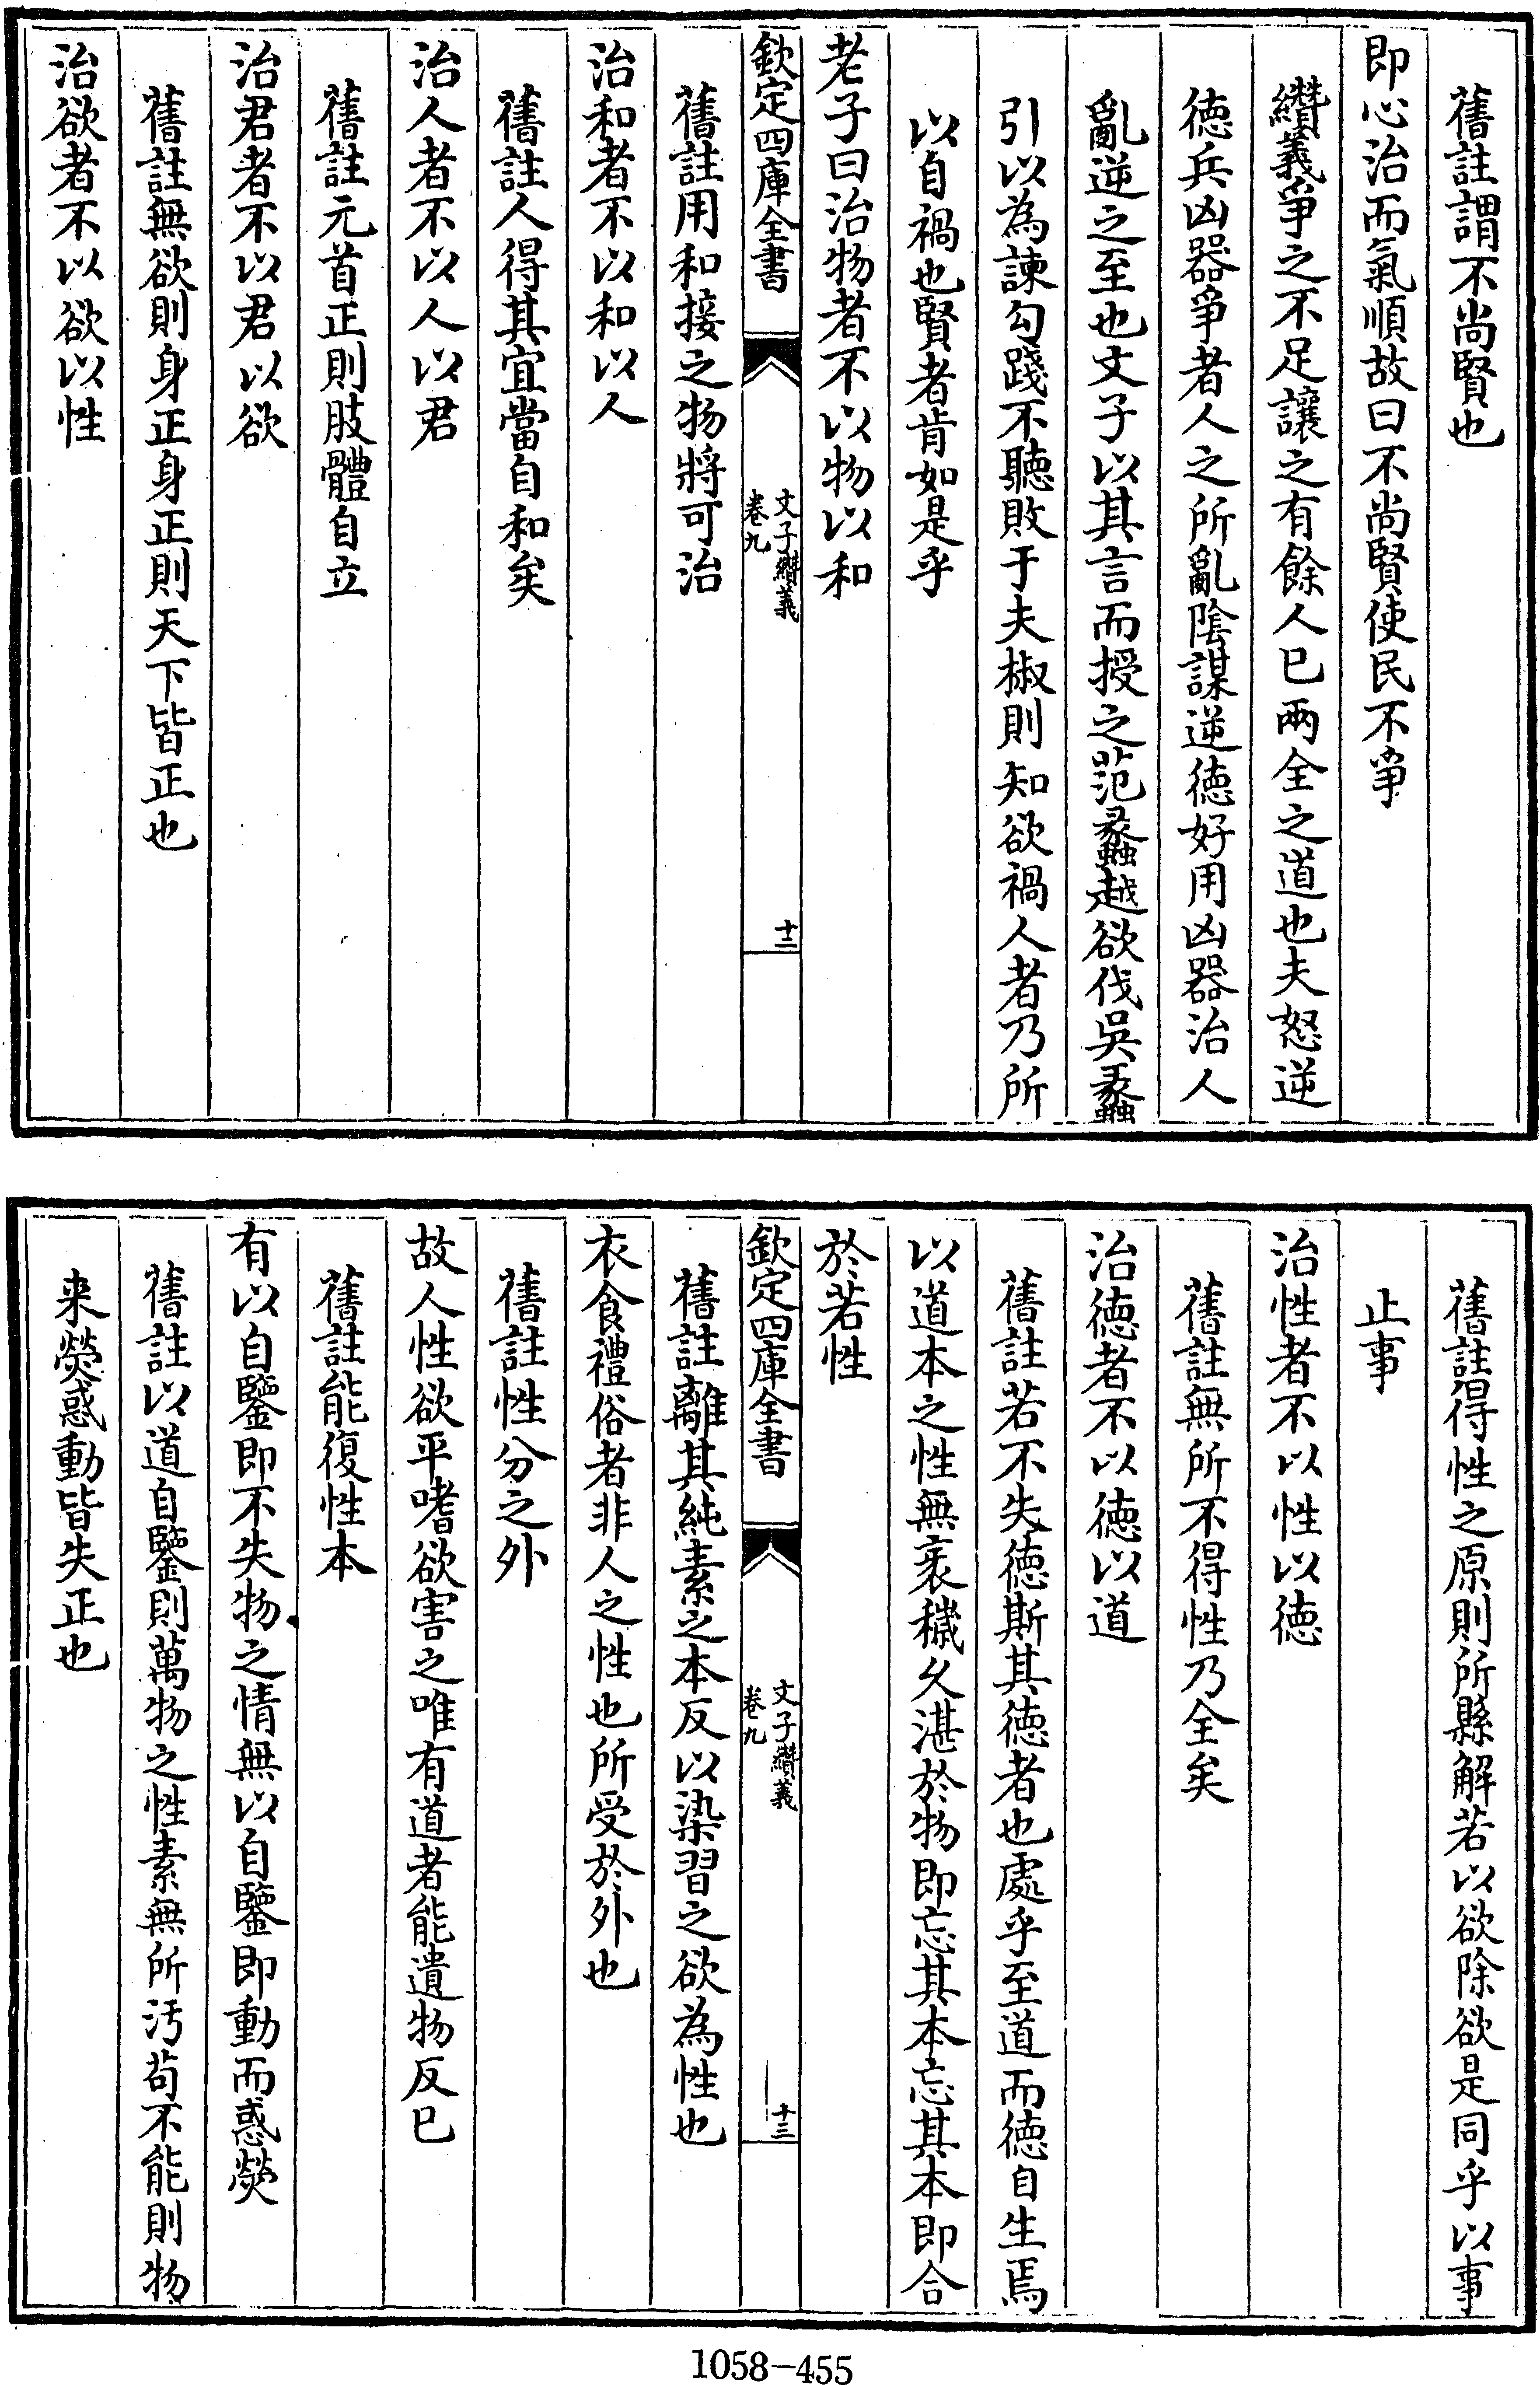 舊註謂不尚賢也
即心治而氣順故曰不尚賢使民不爭
纘義爭之不足讓之有餘人已兩全之道也夫怒逆
徳兵凶器爭者人之所亂陰謀逆徳好用凶器治人
亂逆之至也文子以其言而授之范蠡越欲伐吳蠡
引以為諫勾踐不聽敗于夫椒則知欲禍人者乃所
以自禍也賢者肯如是乎
老子曰治物者不以物以和
欽定四庫全書
文子纘義
卷九
十二
舊註用和接之物將可治
治和者不以和以人
舊註人得其宜當自和矣
治人者不以人以君
舊註元首正則肢體自立
治君者不以君以欲
舊註無欲則身正身正則天下皆正也
治欲者不以欲以性
舊註得性之原則所縣解若以欲除欲是同乎以事
止事
治性者不以性以徳
舊註無所不得性乃全矣
治徳者不以徳以道
舊註若不失徳斯其徳者也處乎至道而徳自生焉
以道本之性無衺穢久湛於物即忘其本忘其本即合
於若性
欽定四庫全書
文子纘義
卷九
十三
舊註離其純素之本反以染習之欲為性也
衣食禮俗者非人之性也所受於外也
舊註性分之外
故人性欲平嗜欲害之唯有道者能遺物反已
舊註能復性本
有以自鑒即不失物之情無以自鑒即動而惑熒
舊註以道自鑒則萬物之性素無所汚苟不能則物
来熒惑動皆失正也
1058-455